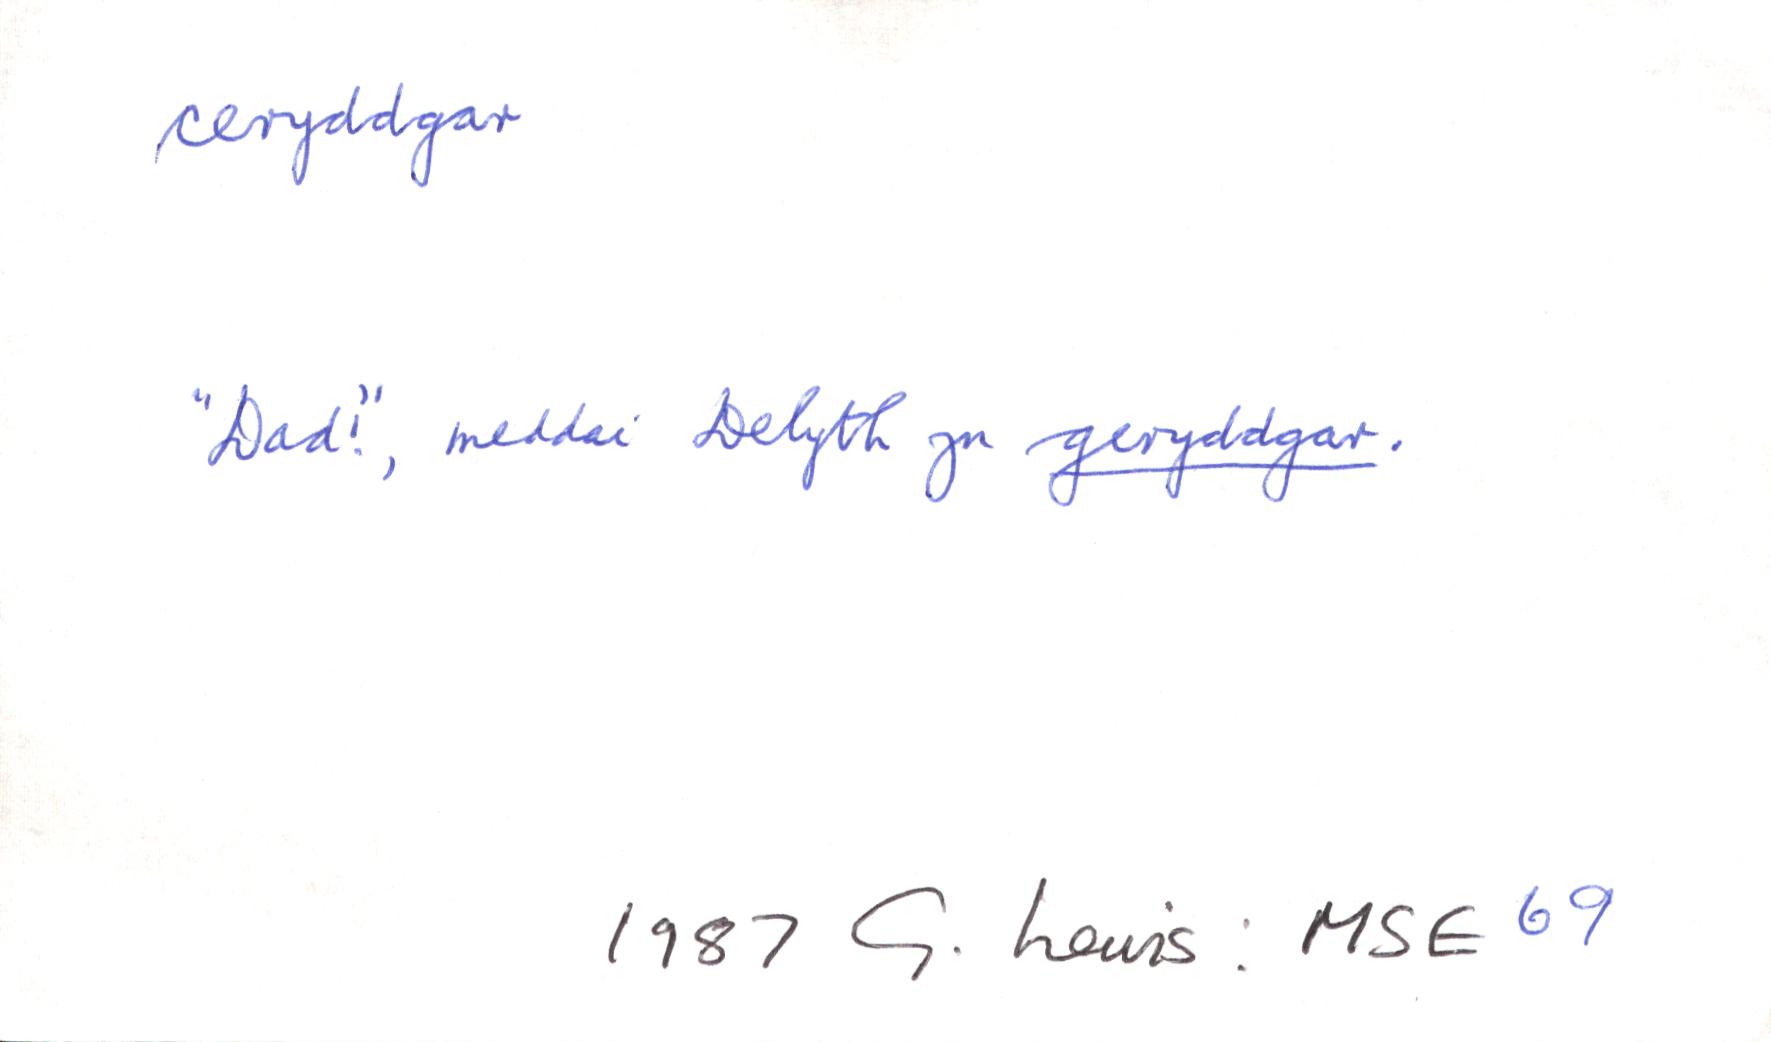 ceryddgar
"Dad!", meddai Delyth yn geryddgar.
1987 G. Lewis: MSE 69